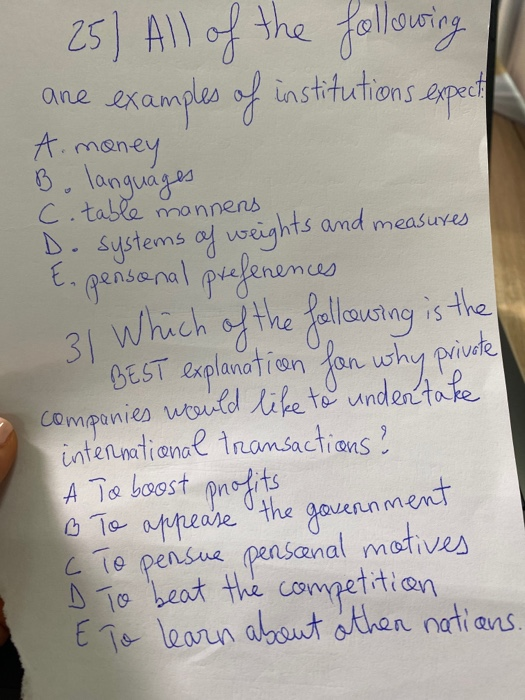 25] All of the following
are examples of institutions expect:
A. money
B. languages
C. table manners
D. systems of weights and measures
E. personal preferences
31 Which of the following is the
BEST explanation for why private
companies would like to undertake
international transactions?
A To boost profits
B To appease the government
C To persue personal motives
D To beat the competition
E To learn about other nations.